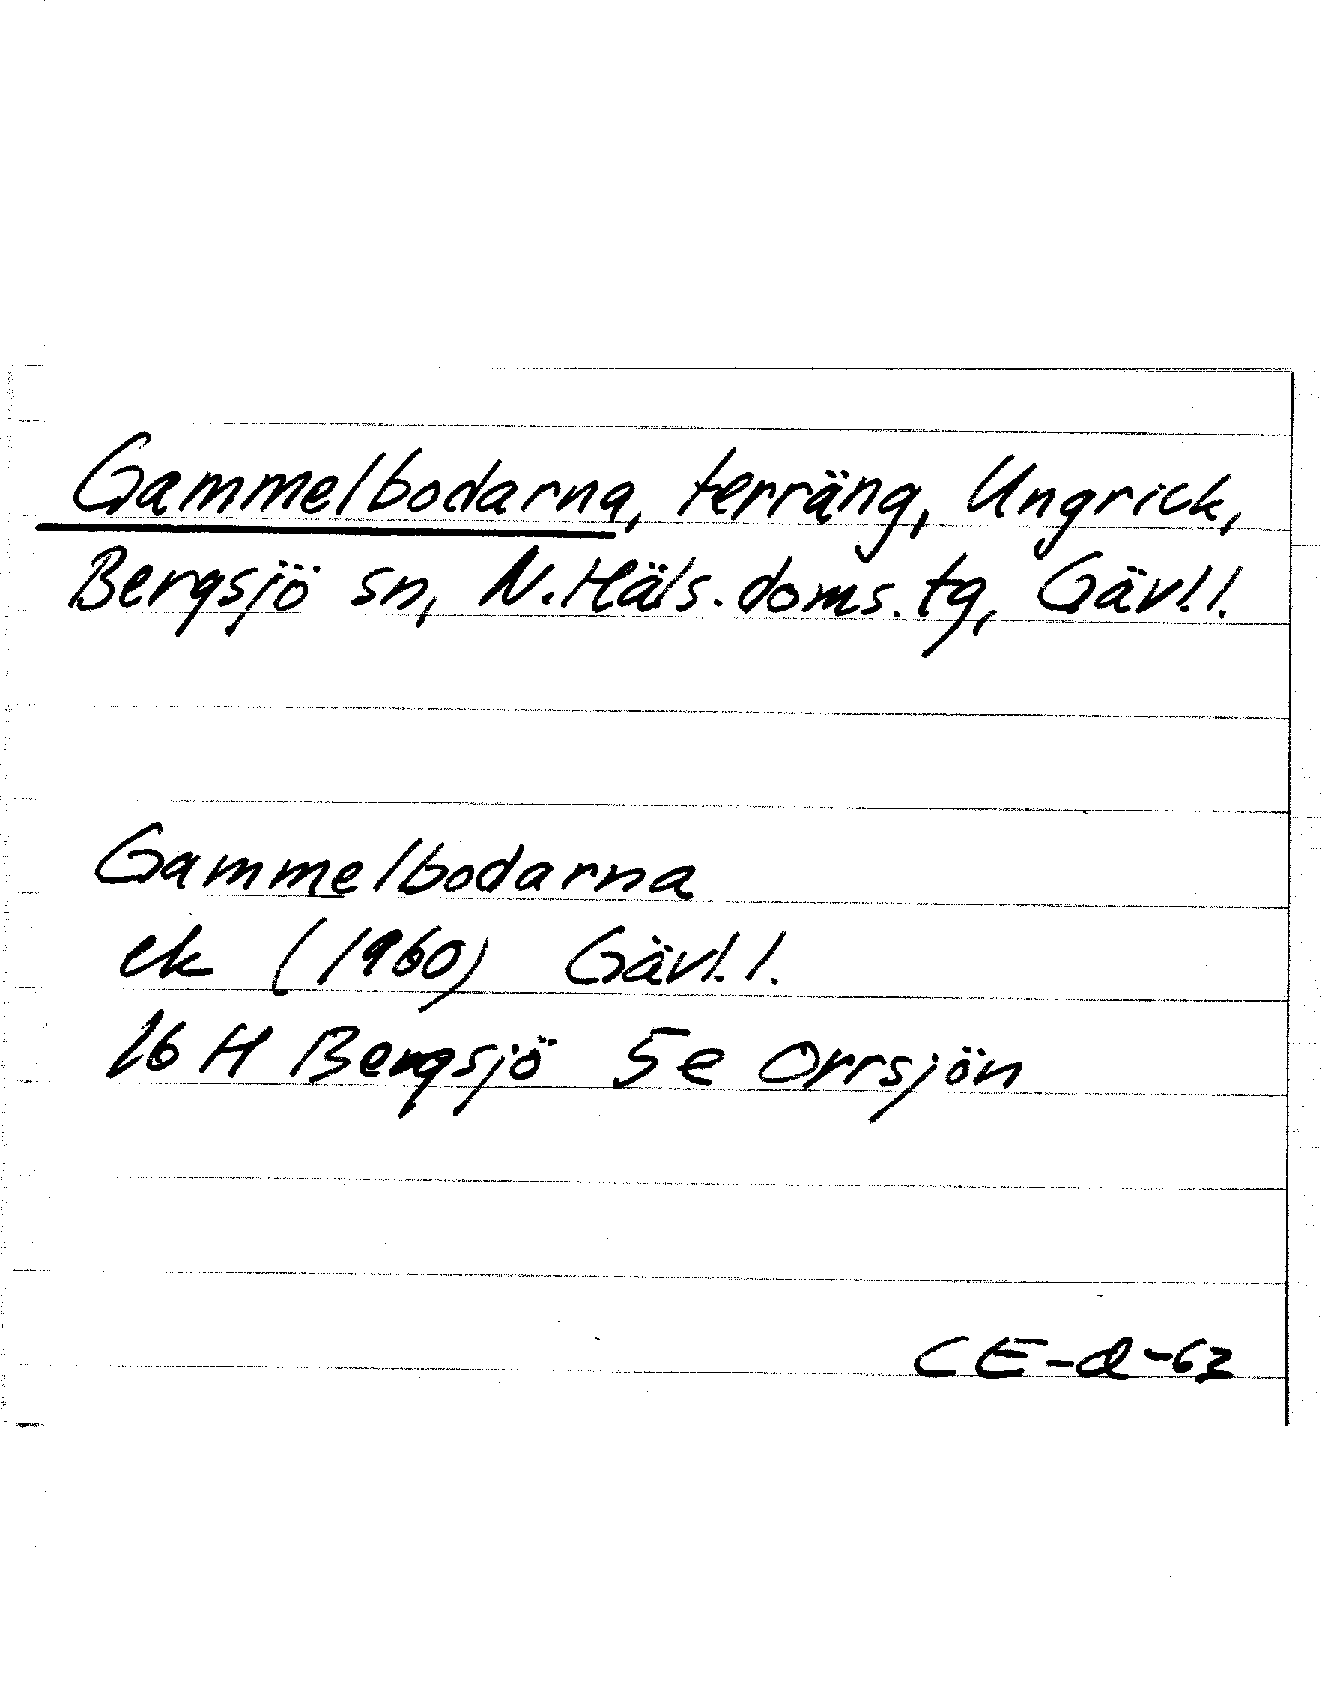 Gammelbodarna, terräng, Ungrick,
Bergsjö sn, N. Häls. doms. tg, Gävl.l.
Gammelbodarna
ek (1960) Gävl.l.
16 H Bergsjö 5e Orrsjön
CE-d-62